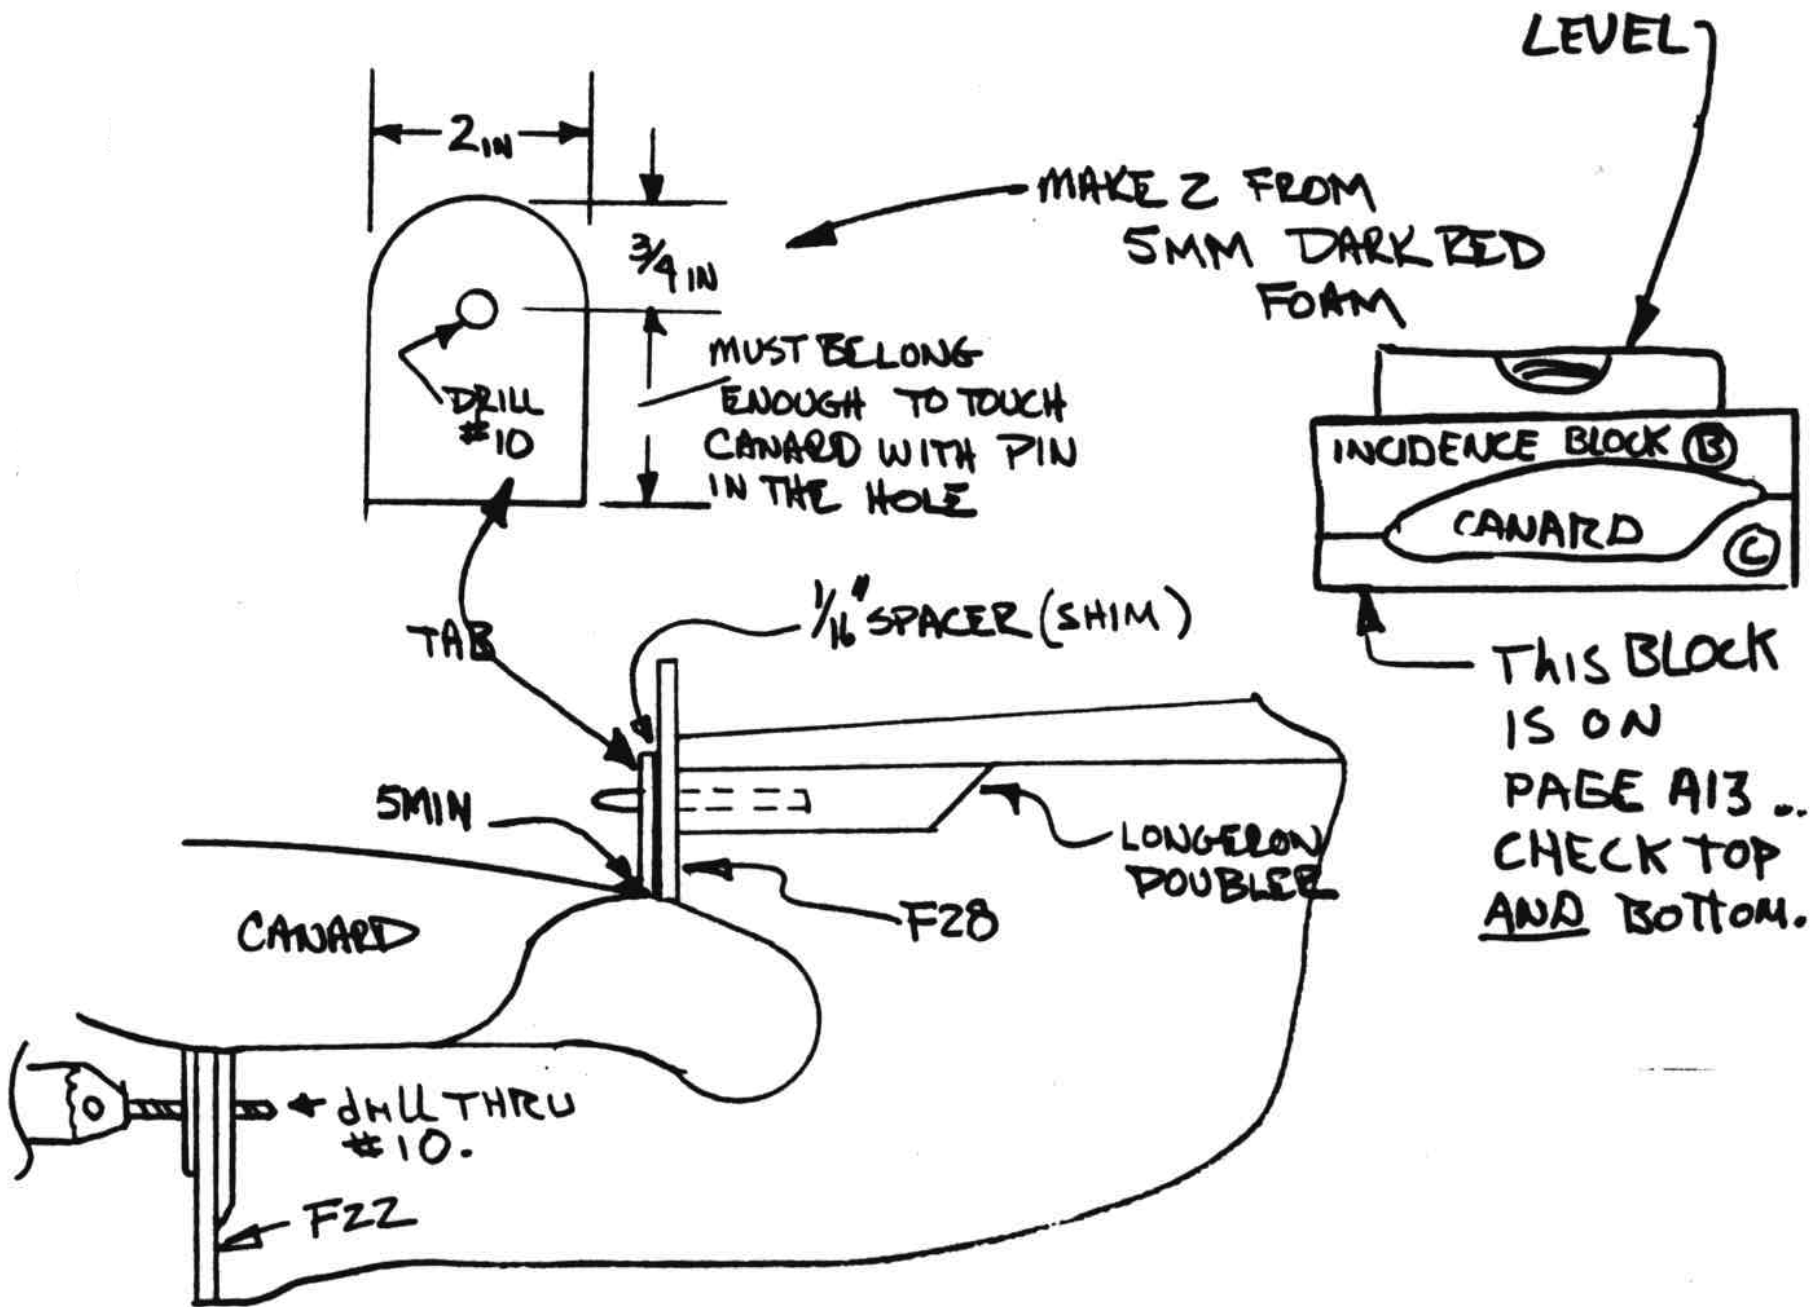 LEVEL
2 IN
3/4 IN
MAKE 2 FROM
5MM DARK RED
FOAM
DRILL
#10
MUST BELONG
ENOUGH TO TOUCH
CANARD WITH PIN
IN THE HOLE
INCIDENCE BLOCK B
CANARD
C
TAB
1/16" SPACER (SHIM)
THIS BLOCK
IS ON
PAGE A13 ..
CHECK TOP
AND BOTTOM.
5MIN
LONGERON
DOUBLER
F28
CANARD
drill THRU
#10.
F22